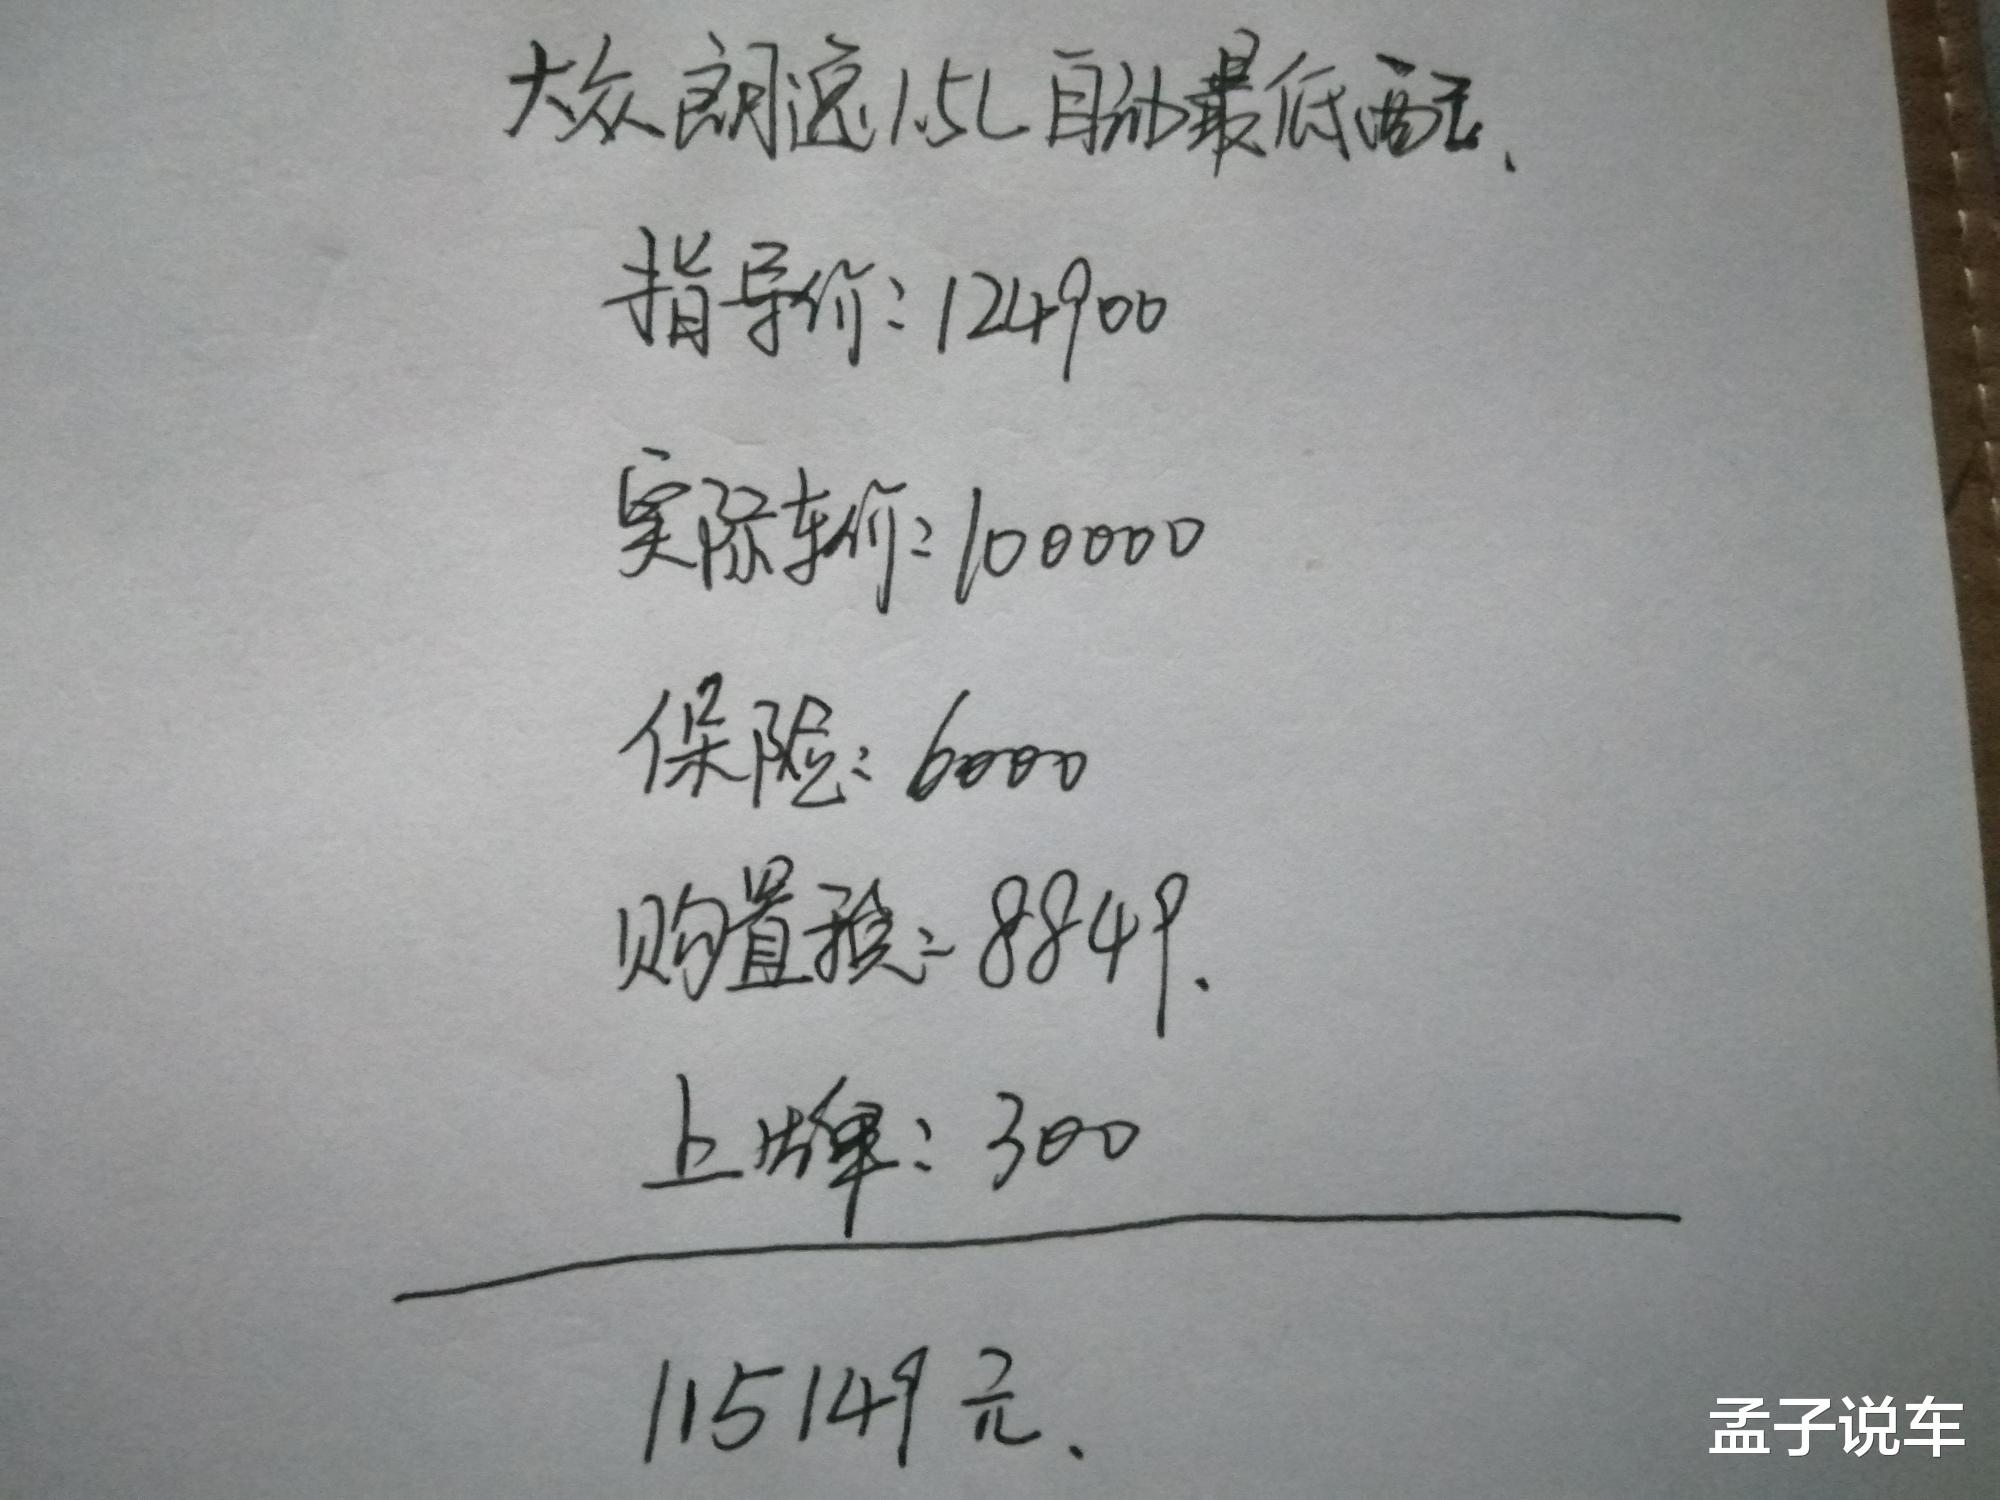 大众朗逸1.5L自动最低配.
指导价:124900
实际车价:100000
保险:6000
购置税:8849.
上牌:300
115149元.
孟子说车